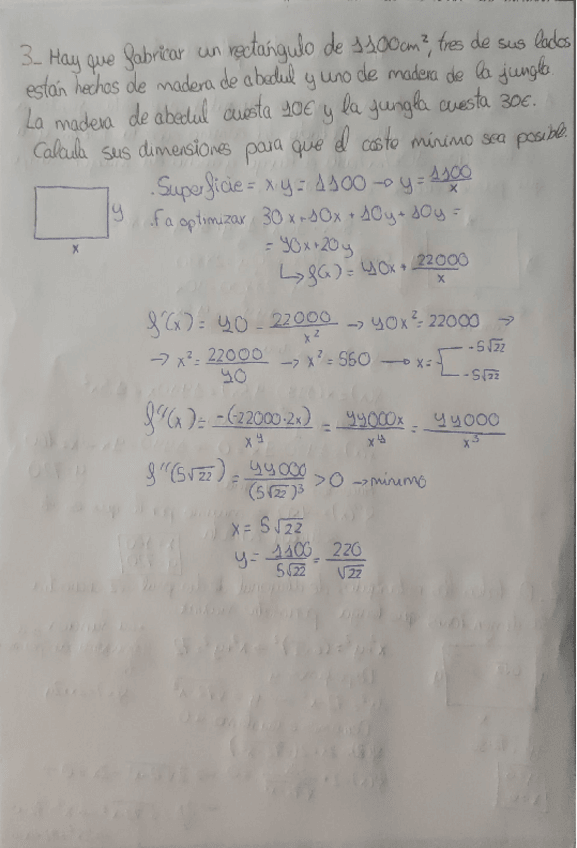 3- Hay que fabricar un rectángulo de 1100cm², tres de sus lados
están hechos de madera de abedul y uno de madera de la jungla.
La madera de abedul cuesta 10€ y la jungla cuesta 30€.
Calcula sus dimensiones para que el costo mínimo sea posible.
.Superficie = x y = 1100 → y = 1100/x
y
.F a optimizar 30x+10x+10y+10y =
x
= 40x+20y
↳ f(x) = 40x + 22000/x
f'(x) = 40 - 22000/x² → 40x² = 22000 →
→ x² = 22000/40 → x² = 550 → x = -5√22 -5√22
f''(x) = -(-22000·2x)/x⁴ = 44000x/x⁴ = 44000/x³
f''(5√22) = 44000/(5√22)³ > 0 → mínimo
x = 5√22
y = 1100/5√22 = 220/√22